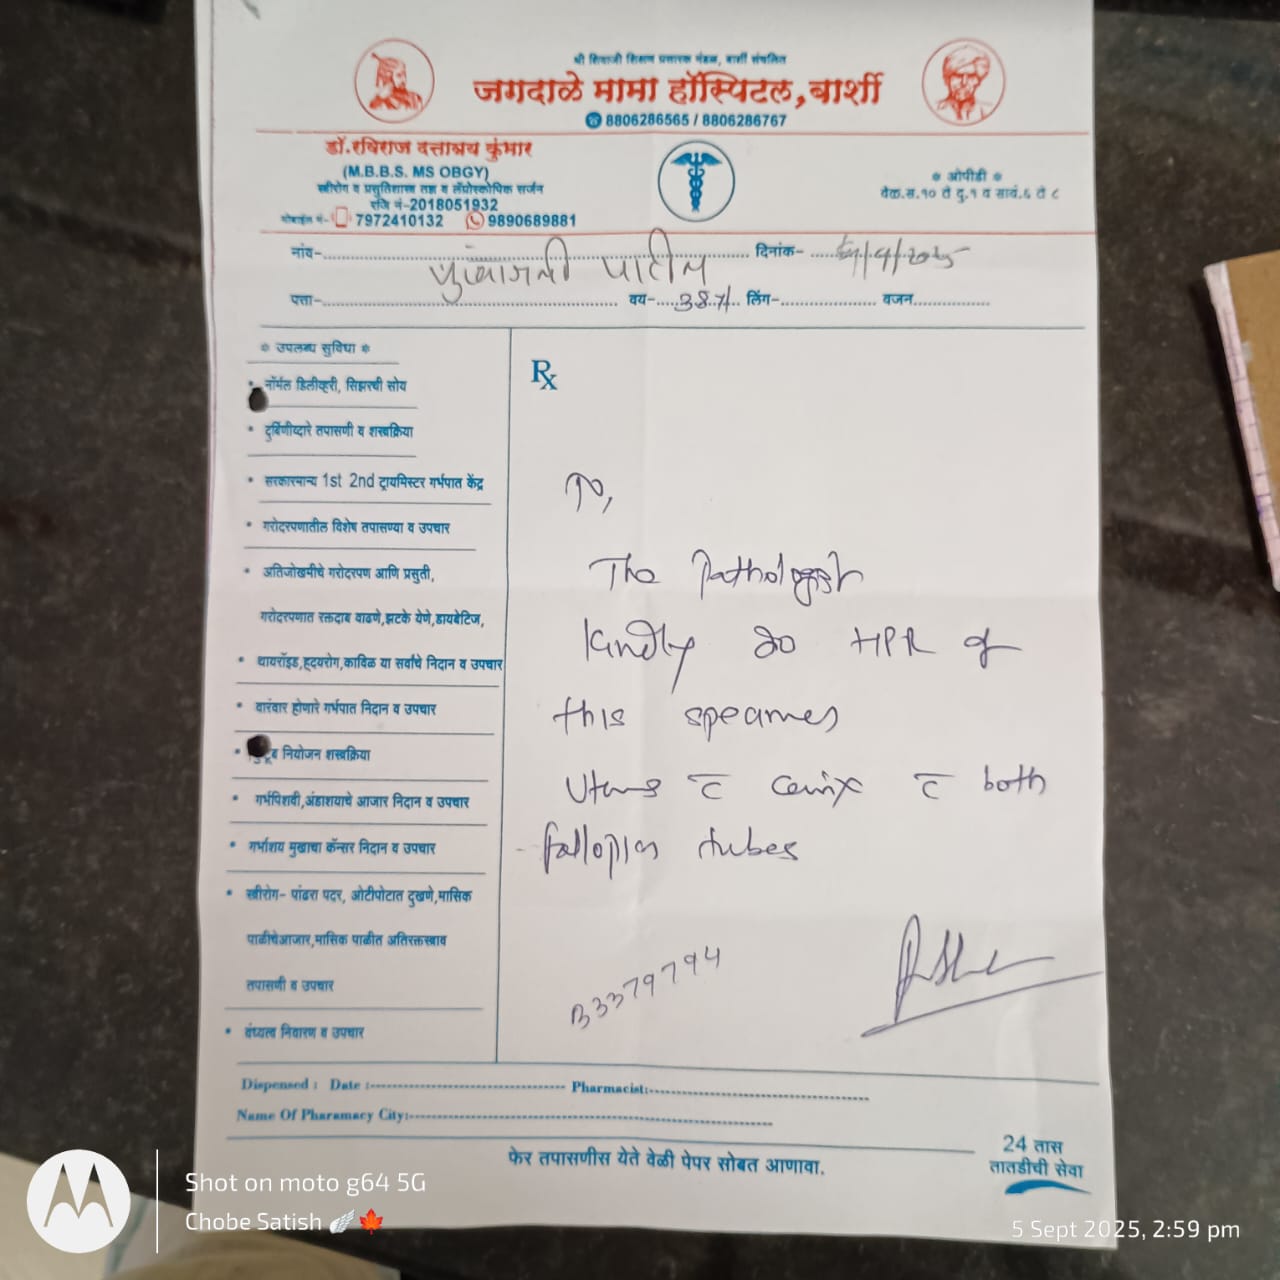 श्री शिवाजी शिक्षण प्रसारक मंडळ, बार्शी संचलित
जगदाळे मामा हॉस्पिटल, बार्शी
8806286565 / 8806286767
डॉ. रविराज दत्तात्रय कुंभार
(M.B.B.S. MS OBGY)
स्त्रीरोग व प्रसुतिशास्त्र तज्ञ व लॅप्रोस्कोपिक सर्जन
रजि नं-2018051932
मोबाईल नं- 7972410132 9890689881
* ओपीडी *
वेळ.स.१० ते दु.१ व सायं.६ ते ८
नांव- पाटील दिनांक- /9/2025
पत्ता- वय- 38 लिंग- वजन
* उपलब्ध सुविधा *
• नॉर्मल डिलीव्हरी, सिझरची सोय
• दुर्बिणीव्दारे तपासणी व शस्त्रक्रिया
• सरकारमान्य 1st 2nd ट्रायमिस्टर गर्भपात केंद्र
• गरोदरपणातील विशेष तपासण्या व उपचार
• अतिजोखमीचे गरोदरपण आणि प्रसुती,
गरोदरपणात रक्तदाब वाढणे,झटके येणे,डायबेटिज,
• थायरॉइड,ह्दयरोग,काविळ या सर्वांचे निदान व उपचार
• वारंवार होणारे गर्भपात निदान व उपचार
• नियोजन शस्त्रक्रिया
• गर्भपिशवी,अंडाशयाचे आजार निदान व उपचार
• गर्भाशय मुखाचा कॅन्सर निदान व उपचार
• स्त्रीरोग- पांढरा पदर, ओटीपोटात दुखणे,मासिक
पाळीचेआजार,मासिक पाळीत अतिरक्तस्त्राव
तपासणी व उपचार
• वंध्यत्व निवारण व उपचार
Rx
To,
The Pathologist
Kindly do HPR of
this specimen
Uterus c̄ cervix c̄ both
fallopian tubes
B3379794
Dispensed : Date :- Pharmacist:-
Name Of Pharamacy City:-
फेर तपासणीस येते वेळी पेपर सोबत आणावा.
24 तास
तातडीची सेवा
Shot on moto g64 5G
Chobe Satish
5 Sept 2025, 2:59 pm